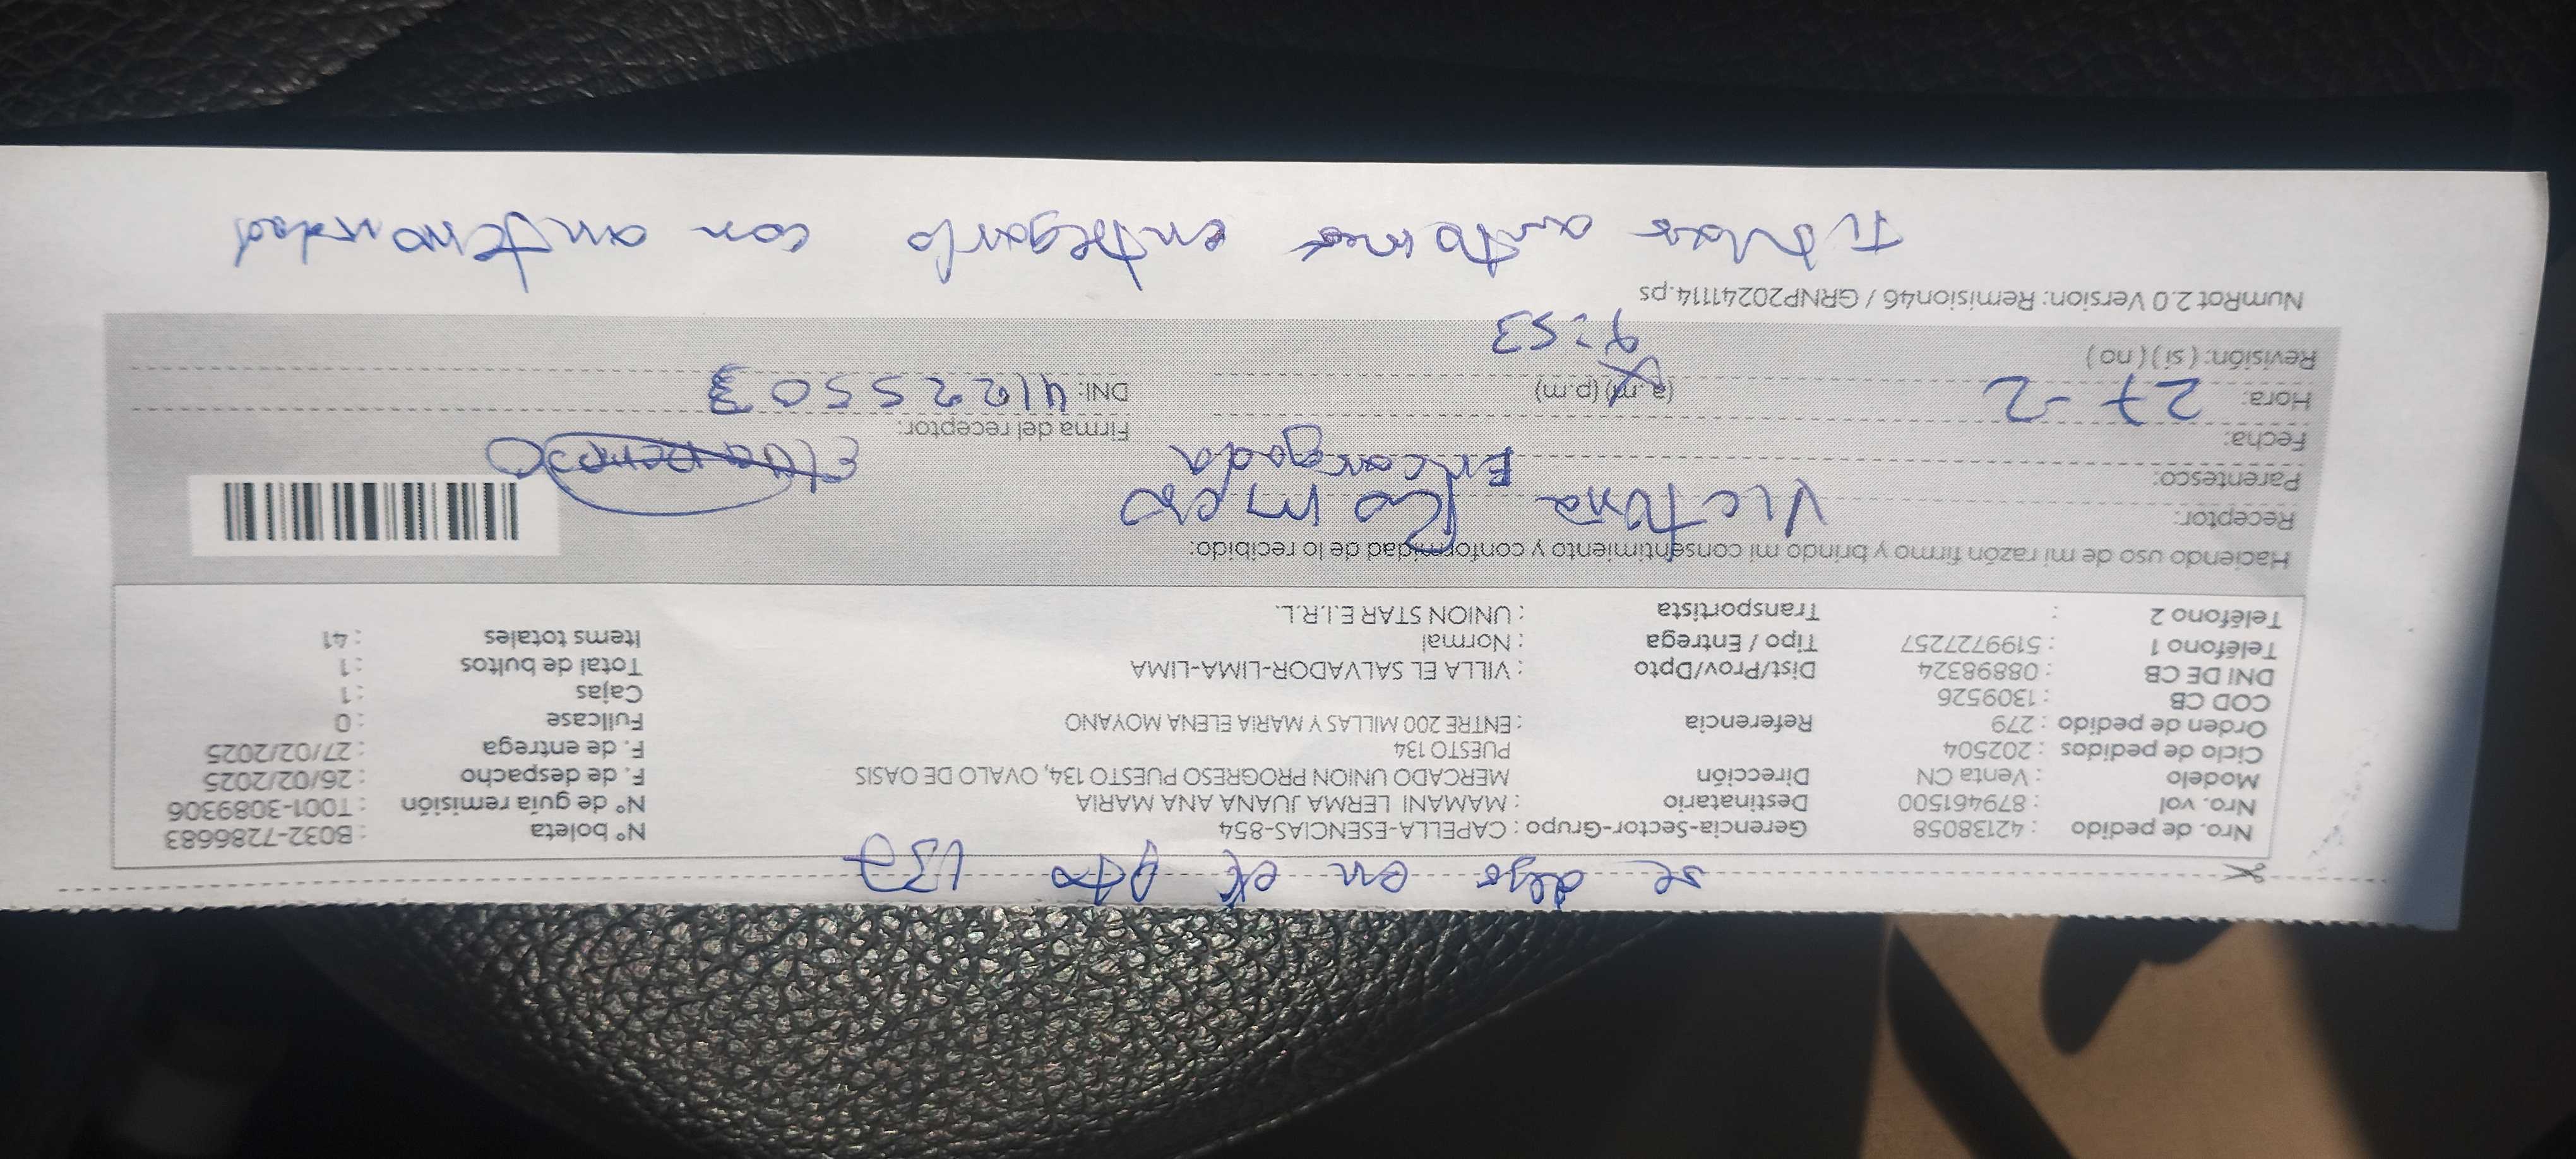 se dejo en el pto 137
Nro. de pedido : 42138058
Nro. vol : 879461500
Modelo : Venta CN
Ciclo de pedidos : 202504
Orden de pedido : 279
COD CB : 1309526
DNI DE CB : 08898324
Teléfono 1 : 51997727257
Teléfono 2 :
Gerencia-Sector-Grupo : CAPELLA-ESENCIAS-854
Destinatario : MAMANI LERMA JUANA ANA MARIA
Dirección MERCADO UNION PROGRESO PUESTO 134, OVALO DE OASIS
PUESTO 134
Referencia : ENTRE 200 MILLAS Y MARIA ELENA MOYANO
Dist/Prov/Dpto : VILLA EL SALVADOR-LIMA-LIMA
Tipo / Entrega : Normal
Transportista : UNION STAR E.I.R.L.
Nº boleta : B032-7286683
Nº de guía remisión : T001-3089306
F. de despacho : 26/02/2025
F. de entrega : 27/02/2025
Fullcase : 0
Cajas : 1
Total de bultos : 1
Items totales : 41
Haciendo uso de mi razón firmo y brindo mi consentimiento y conformidad de lo recibido:
Receptor: Victoria Romero
Parentesco: Encargada
Fecha:
Hora: 27-2 (a.m) (p.m)
9:53
Revisión: ( si ) ( no )
Firma del receptor:
DNI: 41225503
NumRot 2.0 Version: Remision46 / GRNP20241114.ps
Titular autoriza entregarlo con anterioridad